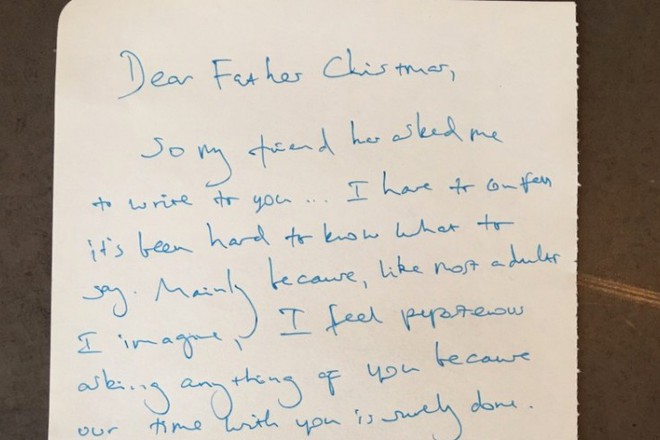 Dear Father Christmas,
So my friend has asked me
to write to you ... I have to confess
it's been hard to know what to
say. Mainly because, like most adults
I imagine, I feel preposterous
asking anything of you because
our time with you is surely done.